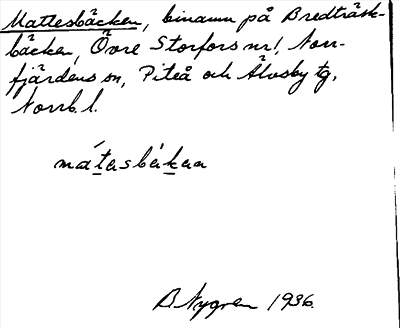 Mattesbäcken, binamn på Bredträsk-
bäcken, Övre Storfors nr 1, Norr-
fjärdens sn, Piteå och Älvsby tg,
Norrb. l.
mátasbäkan
B. Nygren 1936.